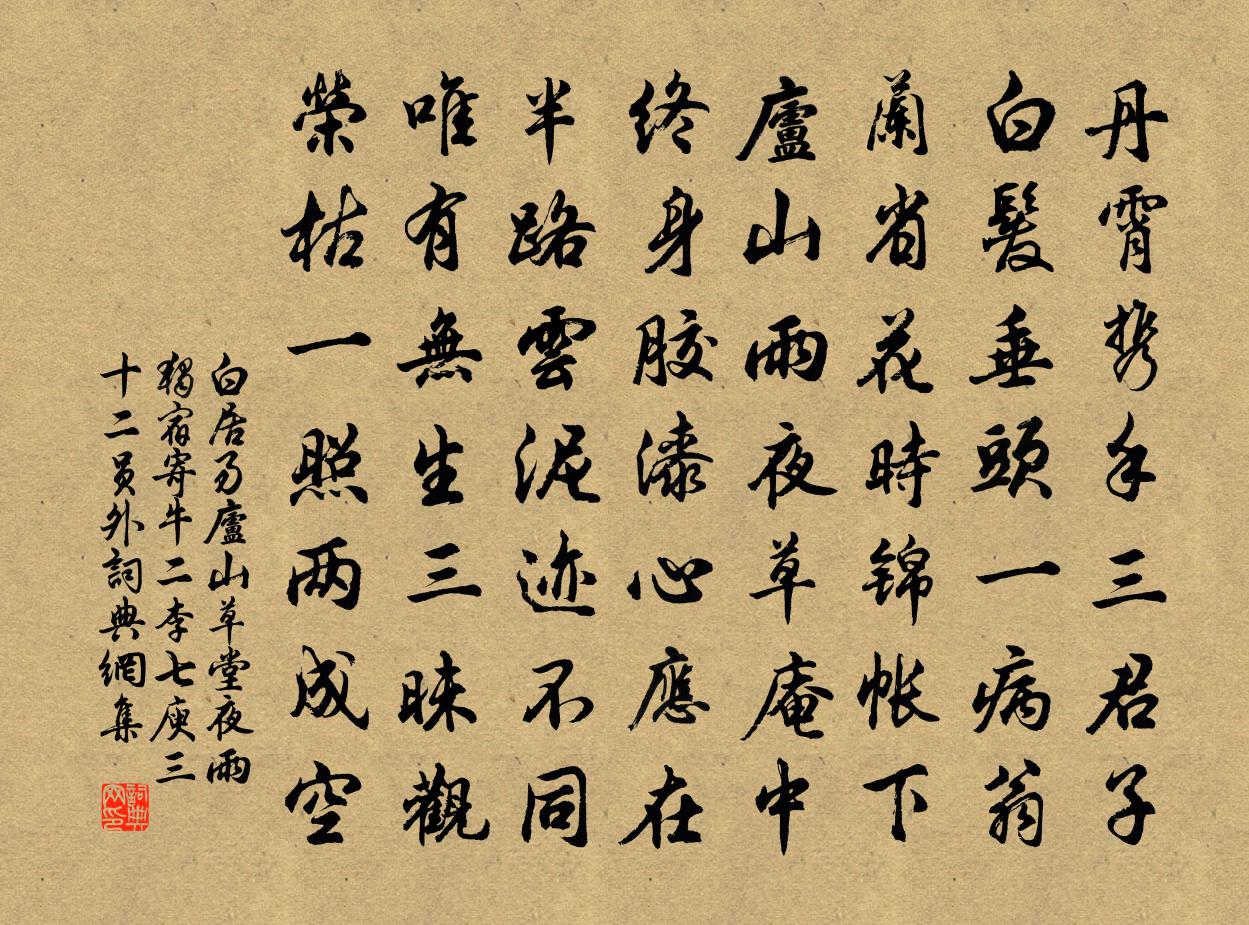 丹霄携手三君子
白髮垂頭一病翁
蘭省花時錦帳下
廬山雨夜草庵中
终身膠漆心應在
半路雲泥迹不同
唯有無生三昧觀
榮枯一照兩成空
白居易廬山草堂夜雨
獨宿寄牛二李七庾三
十二員外詞典網集
詞典
网印